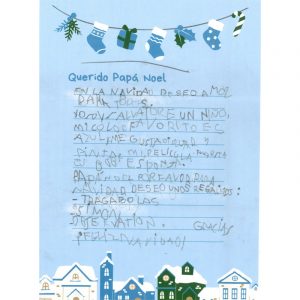 Querido Papá Noel
EN LA NAVIDAD DESEO AMOR
PARA TODOS.
YO SOY SALVATORE UN NIÑO,
MI COLOR FAVORITO ES
AZUL ME GUSTA DIBUJAR Y
PINTAR MI PELÍCULA FAVORITA
ES BOB ESPONJA.
PAPÁ NOEL POR FAVOR PARA
NAVIDAD DESEO UNOS REGALOS:
- TRAGABOLAS
- SIMON
- OPERATION. GRACIAS
¡FELIZ NAVIDAD!